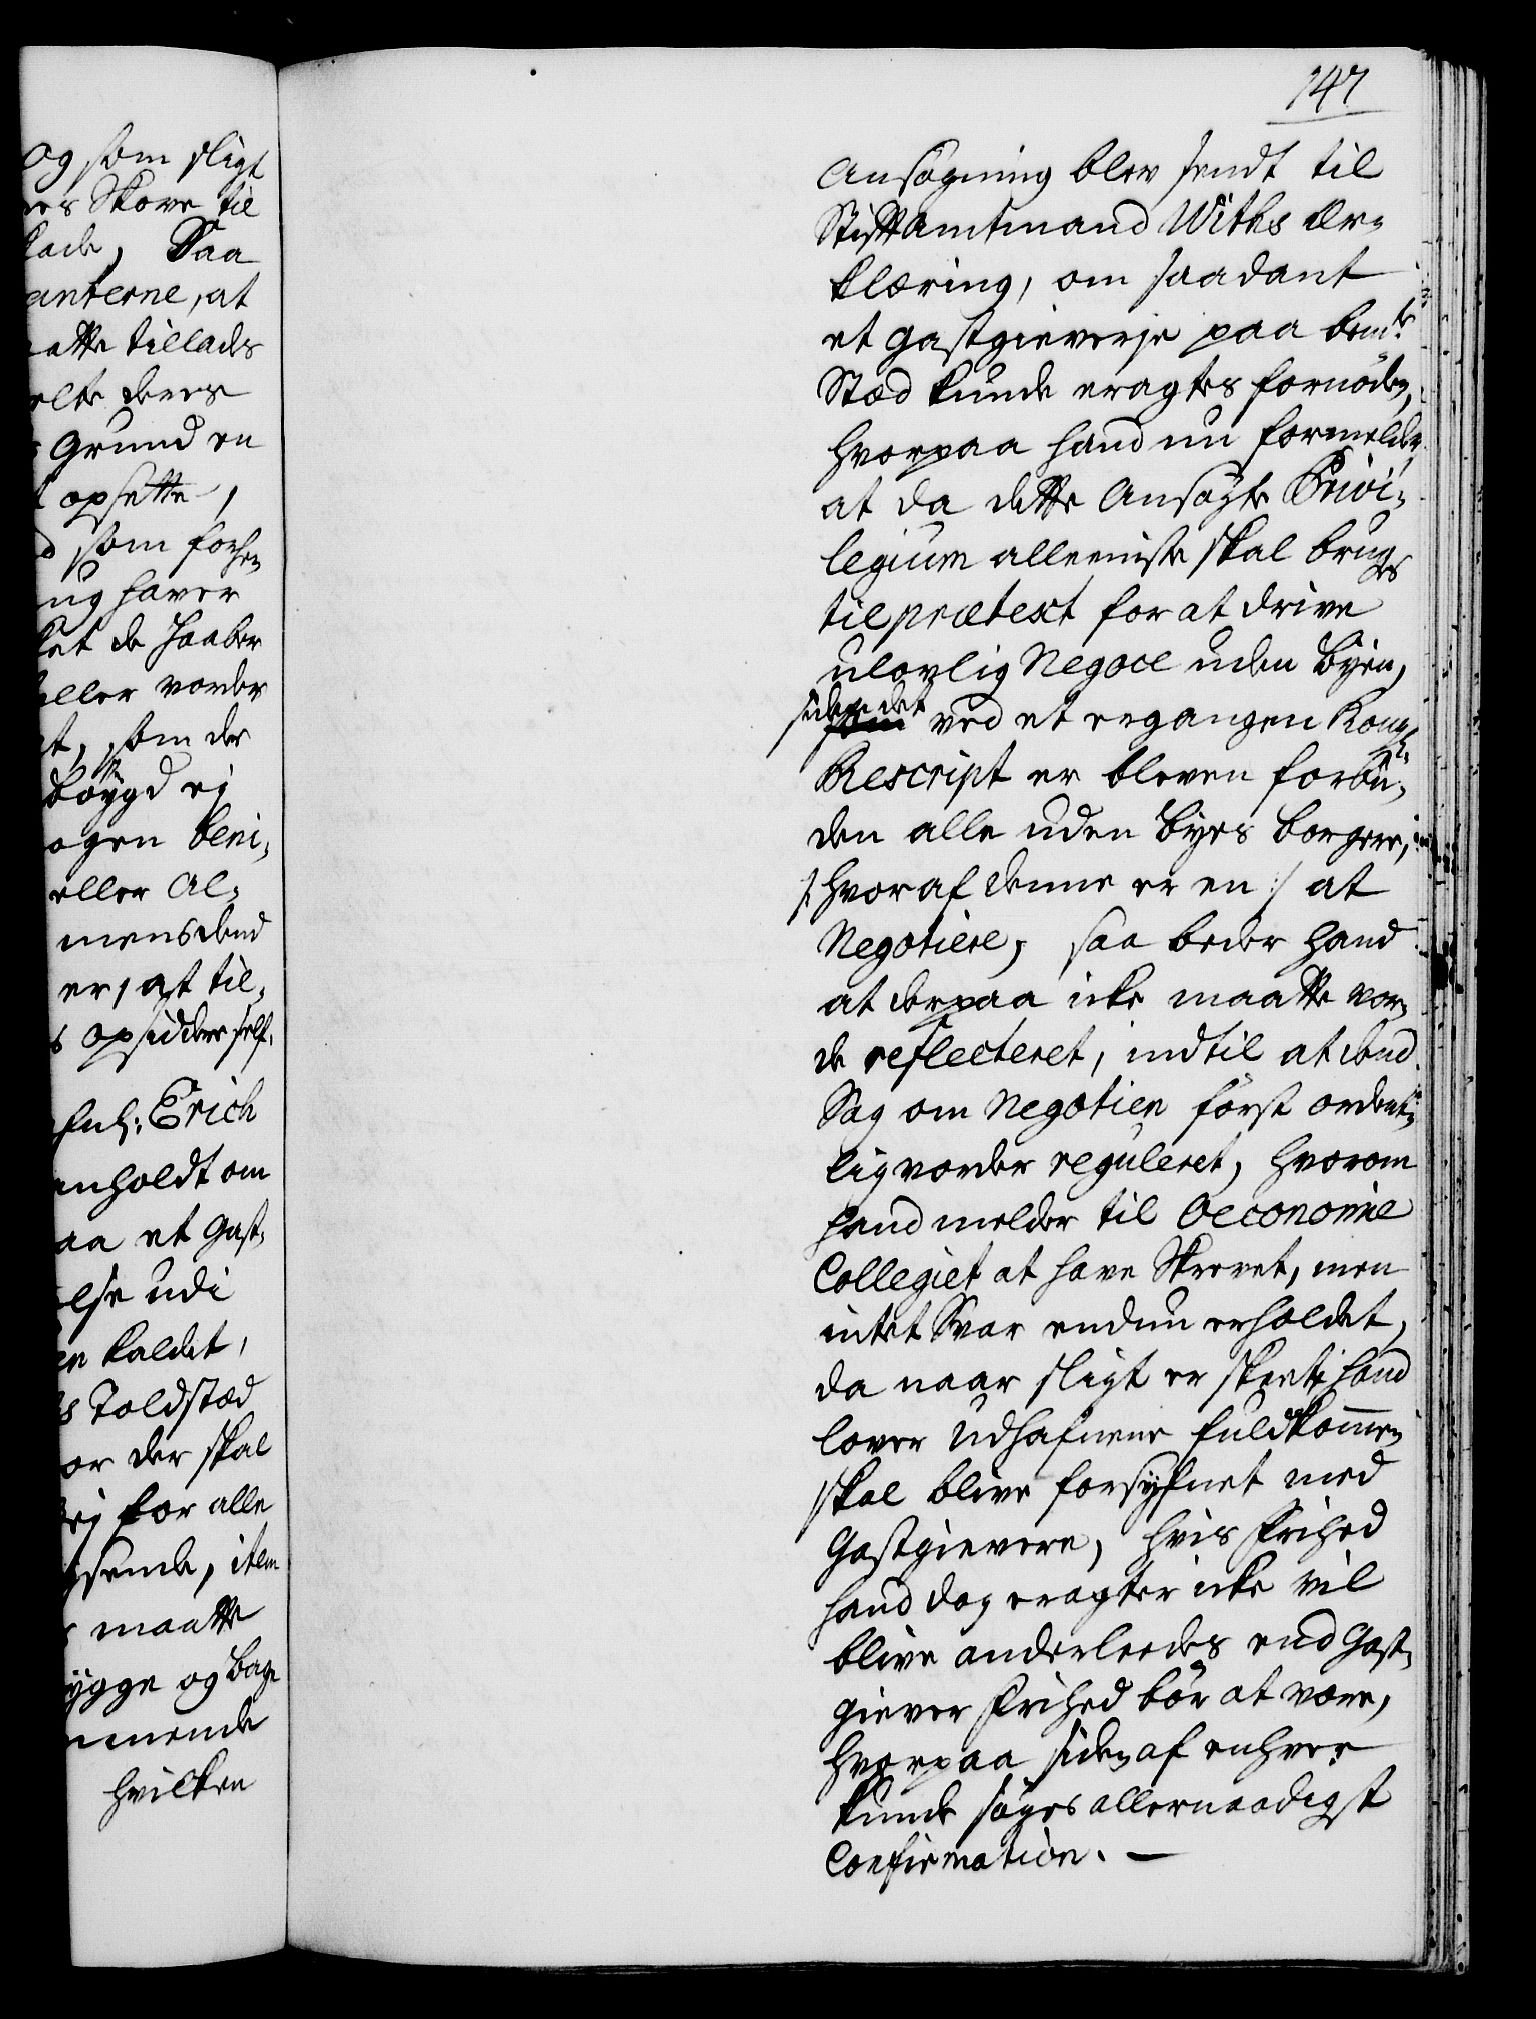 og som sligt
res Skove til
lade, Saa
anterne, at
atte tillades
elte deres
Grund en
opsette,
som forhen
ug haver
ket de haaber
eller vorder
t, som der
bøygd ej
ogen beni-
eller Al-
mensdend
er, at til-
s opsidder self.
fuld: Erich
anholdt om
aa et Gast-
else udi
en kaldet,
s Toldstæd
or der skal
ej for alle
sende, item
maatte
ygge og bage
mende
hvilken
147
Ansøgning blev sendt til
Stiftamtmand Withs Er-
klæring, om saadant
et gastgieverje paa bemte
Stæd kunde eragtes fornøden,
hvorpaa hand nu formelder,
at da dette Ansøgte Privi-
legium alleeniste skal bruges
til prætext for at drive
ulovlig Negoce uden byen,
siden det som ved et ergangen Kongl:
Rescript er bleven forbu-
den alle uden byes borgere,
/: hvoraf denne er en :/ at
Negotiere, saa beder hand
at derpaa icke maatte vor-
de reflecteret, indtil at dend
Sag om Negotien først ordent-
lig vorder reguleret, hvorom
hand melder til Oeconomie
Collegiet at have Skrevet, men
intet Svar endnu erholdet,
da naar sligt er skeet, hand
lover Udhafnene fuldkommen
skal blive forsyfnet med
Gastgievere, hvis Frihed
hand dog eragter icke vil
blive anderleedes end Gast-
giever Frihed bør at være,
hvorpaa siden af enhver
kunde søges allernaadigst
Confirmation. —